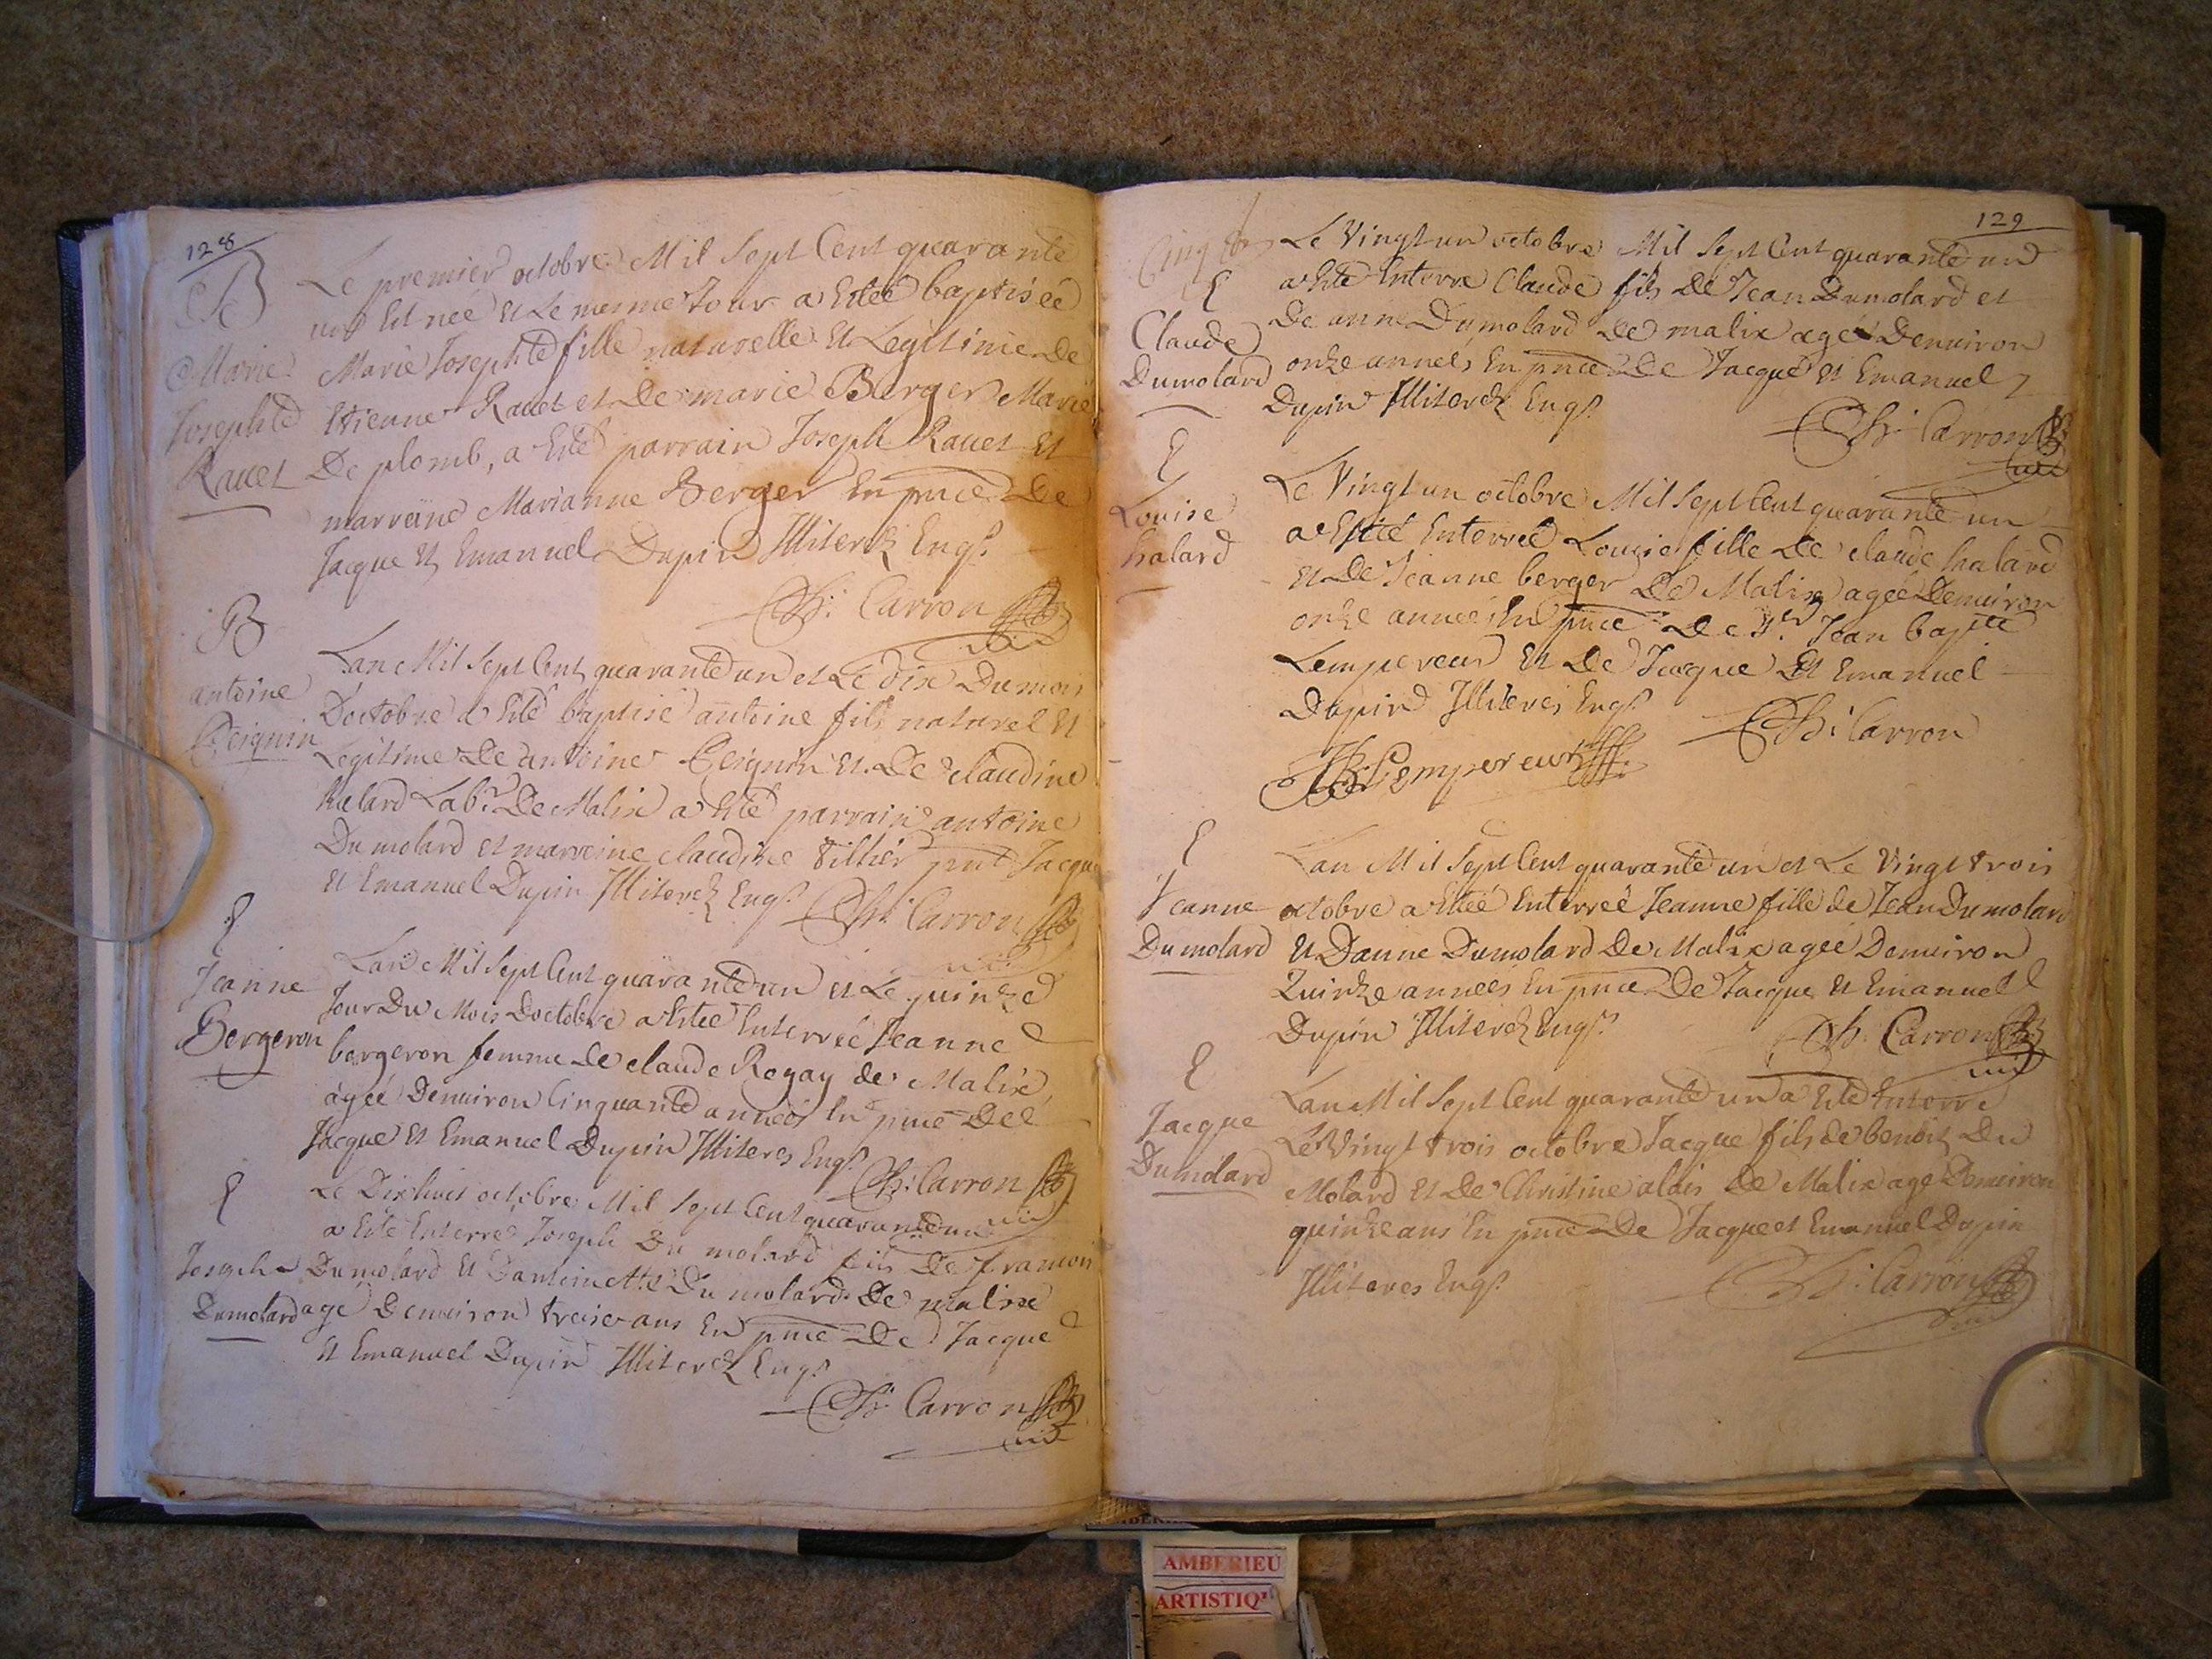 128
B
Marie
Josephte
Rauet
Le premier octobre Mil Sept Cent quarante
un Est neé et Le mesme Jour a Esteé baptiseé
Marie Josephte fille naturelle Et Legitime De
Etienne Rauet et De marie Berger Marié
De plomb, a Esté parrain Joseph Rauet et
marreine Marianne Berger En pnce De
Jacque Et Emanuel Dupin Illiterez Enqs
Carron
B
antoine
Peignin
Lan Mil Sept Cent quarante un et Le dix Du mois
Doctobre a Esté baptisé antoine fils naturel Et
Legitime De antoine Peignin Et De claudine
halard Labr De Malix a Esté parrain antoine
Dumolard et marreine claudine Villier pnt Jacque
Et Emanuel Dupin Illiterez Enqs
Carron
E
Jeanne
Bergeron
Lan Mil Sept Cent quarante un et Le quinze
Jour Du Mois Doctobre a Esteé Enterreé Jeanne
bergeron femme de claude Rogay de Malix
ageé Denuiron Cinquante anneés En pnce De
Jacque Et Emanuel Dupin Illiteres Enqs
Carron
E
Joseph
Dumolard
Le Dixhuit octobre Mil Sept Cent quarante un
a Esté Enterré Joseph Du molard fils De francois
Dumolard Et Dantoinette Du molard De malix
agé Denuiron treise ans En pnce De Jacque
Et Emanuel Dupin Illiterez Enqs
Carron
129
E
Claude
Dumolard
Le Vingt un octobre Mil Sept Cent quarante un
a Esté Enterré Claude fils De Jean Dumolard et
De anne Dumolard De malix agé Denuiron
onze anneés En pnce De Jacque Et Emanuel
Dupin Illiterez Enqs
Carron
E
Louise
halard
Le Vingt un octobre Mil Sept Cent quarante un
a Esteé Enterreé Louise fille De claude halard
Et De Jeanne berger De Malix ageé Denuiron
onze anneés En pnce De Sr Jean baptte
Lempereur Et De Jacque Et Emanuel
Dupin Illiteres Enqs
Carron
Lempereur
E
Jeanne
Dumolard
Lan Mil Sept Cent quarante un et Le Vingt trois
octobre a Esteé Enterreé Jeanne fille de Jean Dumolard
Et Danne Dumolard De Malix ageé Denuiron
Quinze anneés En pnce De Jacque Et Emanuel
Dupin Illiterez Enqs
Carron
E
Jacque
Dumolard
Lan Mil Sept Cent quarante un a Esté Enterré
Le Vingt trois octobre Jacque fils de benoit Du
Molard Et De Christine alais De Malix agé Denuiron
quinze ans En pnce De Jacque et Emanuel Dupin
Illiteres Enqs
Carron
AMBERIEU
ARTISTIQ